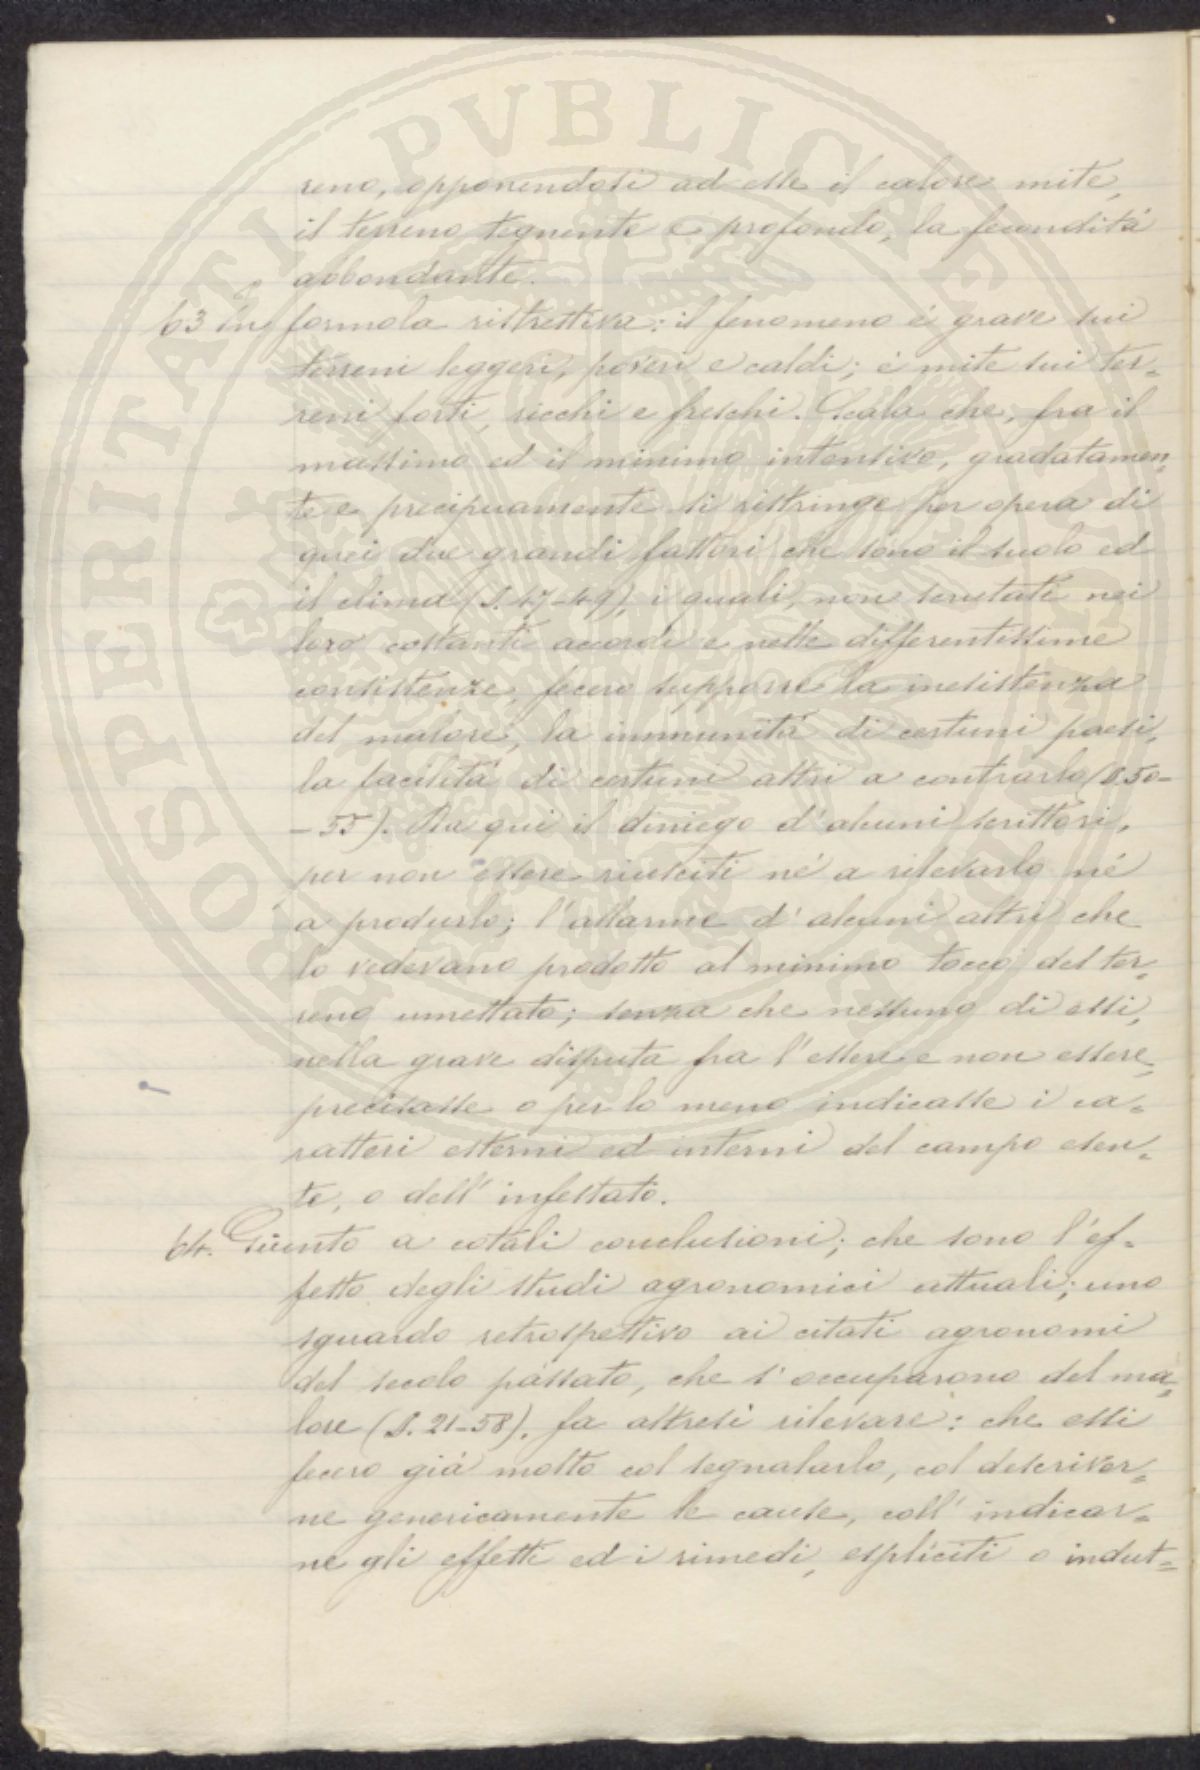 PROSPERITATI PVBLICAE AVGENDAE
reno, opponendosi ad esse il calore mite,
il terreno tegnente e profondo, la fecondità
abbondante.
63 In formola ristrettiva: il fenomeno è grave sui
terreni leggeri, poveri e caldi; è mite sui ter=
reni forti, ricchi e freschi. Scala che, fra il
massimo ed il minimo intensivo, gradatamen=
te e precipuamente si ristringe per opera di
quei due grandi fattori che sono il suolo ed
il clima (§. 47-49), i quali, non scrutati nei
loro costanti accordi e nelle differentissime
consistenze, fecero supporre la inesistenza
del malore, la immunità di certuni paesi,
la facilità di certuni altri a contrarlo (§. 50-
-55). Da qui il diniego d'alcuni scrittori,
per non essere riusciti né a rilevarlo né
a produrlo; l'allarme d'alcuni altri che
lo vedevano prodotto al minimo tocco del ter=
reno umettato; senza che nessuno di essi,
nella grave disputa fra l'essere e non essere,
precisasse o per lo meno indicasse i ca=
ratteri esterni ed interni del campo esen=
te, o dell'infestato.
64. Giunto a cotali conclusioni; che sono l'ef=
fetto degli studi agronomici attuali; uno
sguardo retrospettivo ai citati agronomi
del secolo passato, che s'occuparono del ma=
lore (§. 21-58), fa altresì rilevare: che essi
fecero già molto col segnalarlo, col descriver=
ne genericamente le cause, coll'indicar=
ne gli effetti ed i rimedi, espliciti o indut=